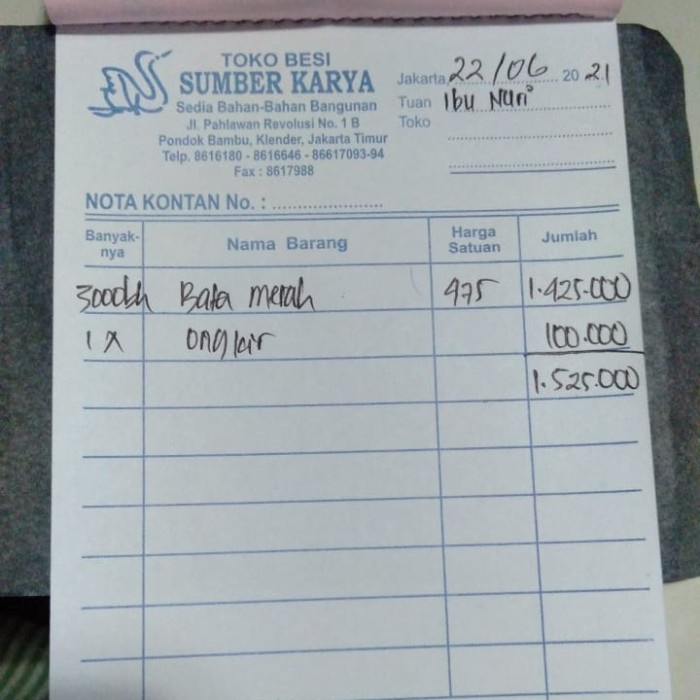 TOKO BESI
SUMBER KARYA
Sedia Bahan-Bahan Bangunan
Jl. Pahlawan Revolusi No. 1 B
Pondok Bambu, Klender, Jakarta Timur
Telp. 8616180 - 8616646 - 86617093-94
Fax : 8617988
Jakarta, 22/06 20 21
Tuan Ibu Nuri
Toko
NOTA KONTAN No. : ......................
Banyak-nya Nama Barang Harga Satuan Jumlah
3000bh Bata merah 475 1.425.000
1 X ongkir 100.000
1.525.000